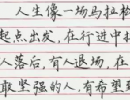 人生像一场马拉松
起点出发，在行进中
人落后，有人退场，在
取坚强的人，有希望